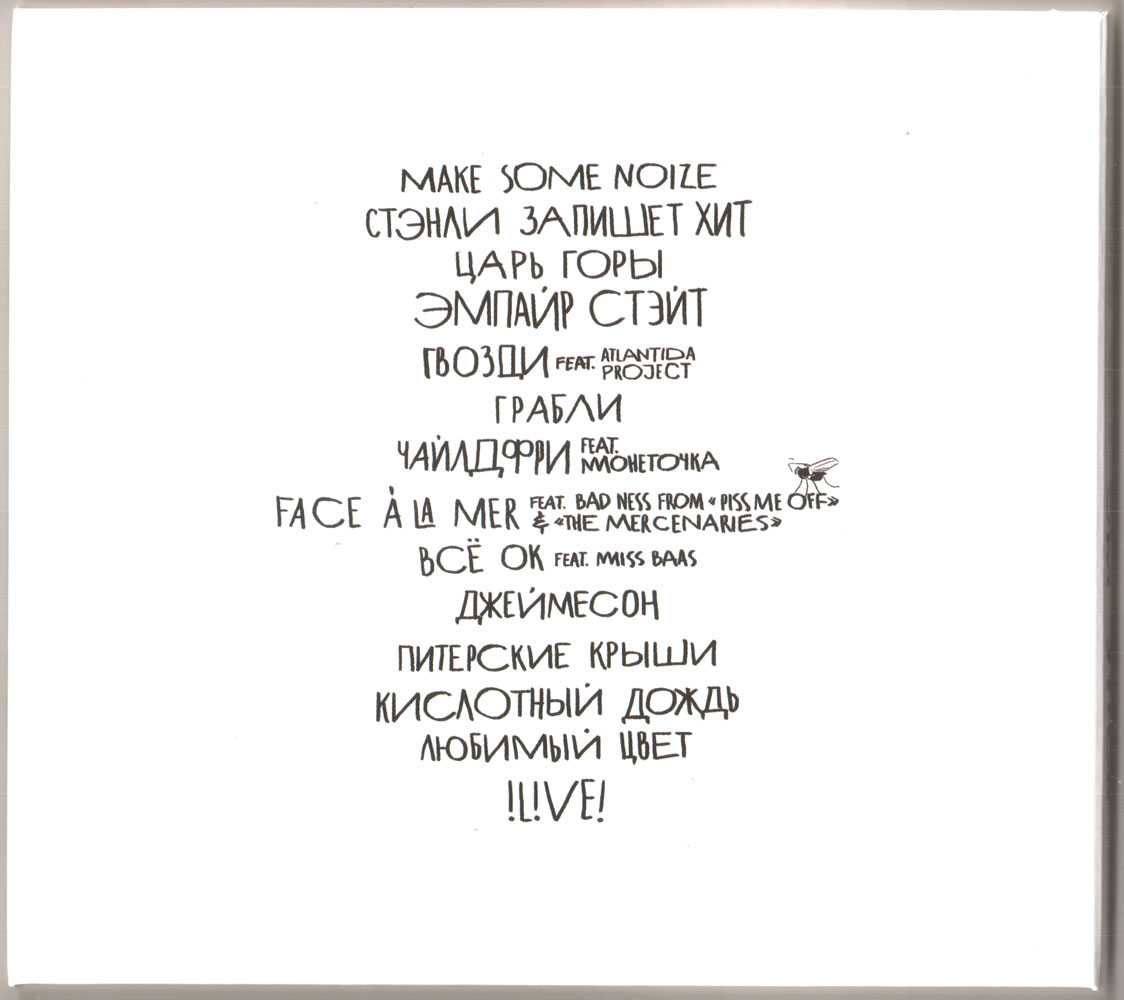 MAKE SOME NOIZE
СТЭНЛИ ЗАПИШЕТ ХИТ
ЦАРЬ ГОРЫ
ЭМПАЙР СТЭЙТ
ГВОЗДИ FEAT. ATLANTIDA PROJECT
ГРАБЛИ
ЧАЙЛДФРИ FEAT. МОНЕТОЧКА
FACE À LA MER FEAT. BAD NESS FROM «PISS ME OFF» & «THE MERCENARIES»
ВСЁ ОК FEAT. MISS BAAS
ДЖЕЙМЕСОН
ПИТЕРСКИЕ КРЫШИ
КИСЛОТНЫЙ ДОЖДЬ
ЛЮБИМЫЙ ЦВЕТ
!L!VE!